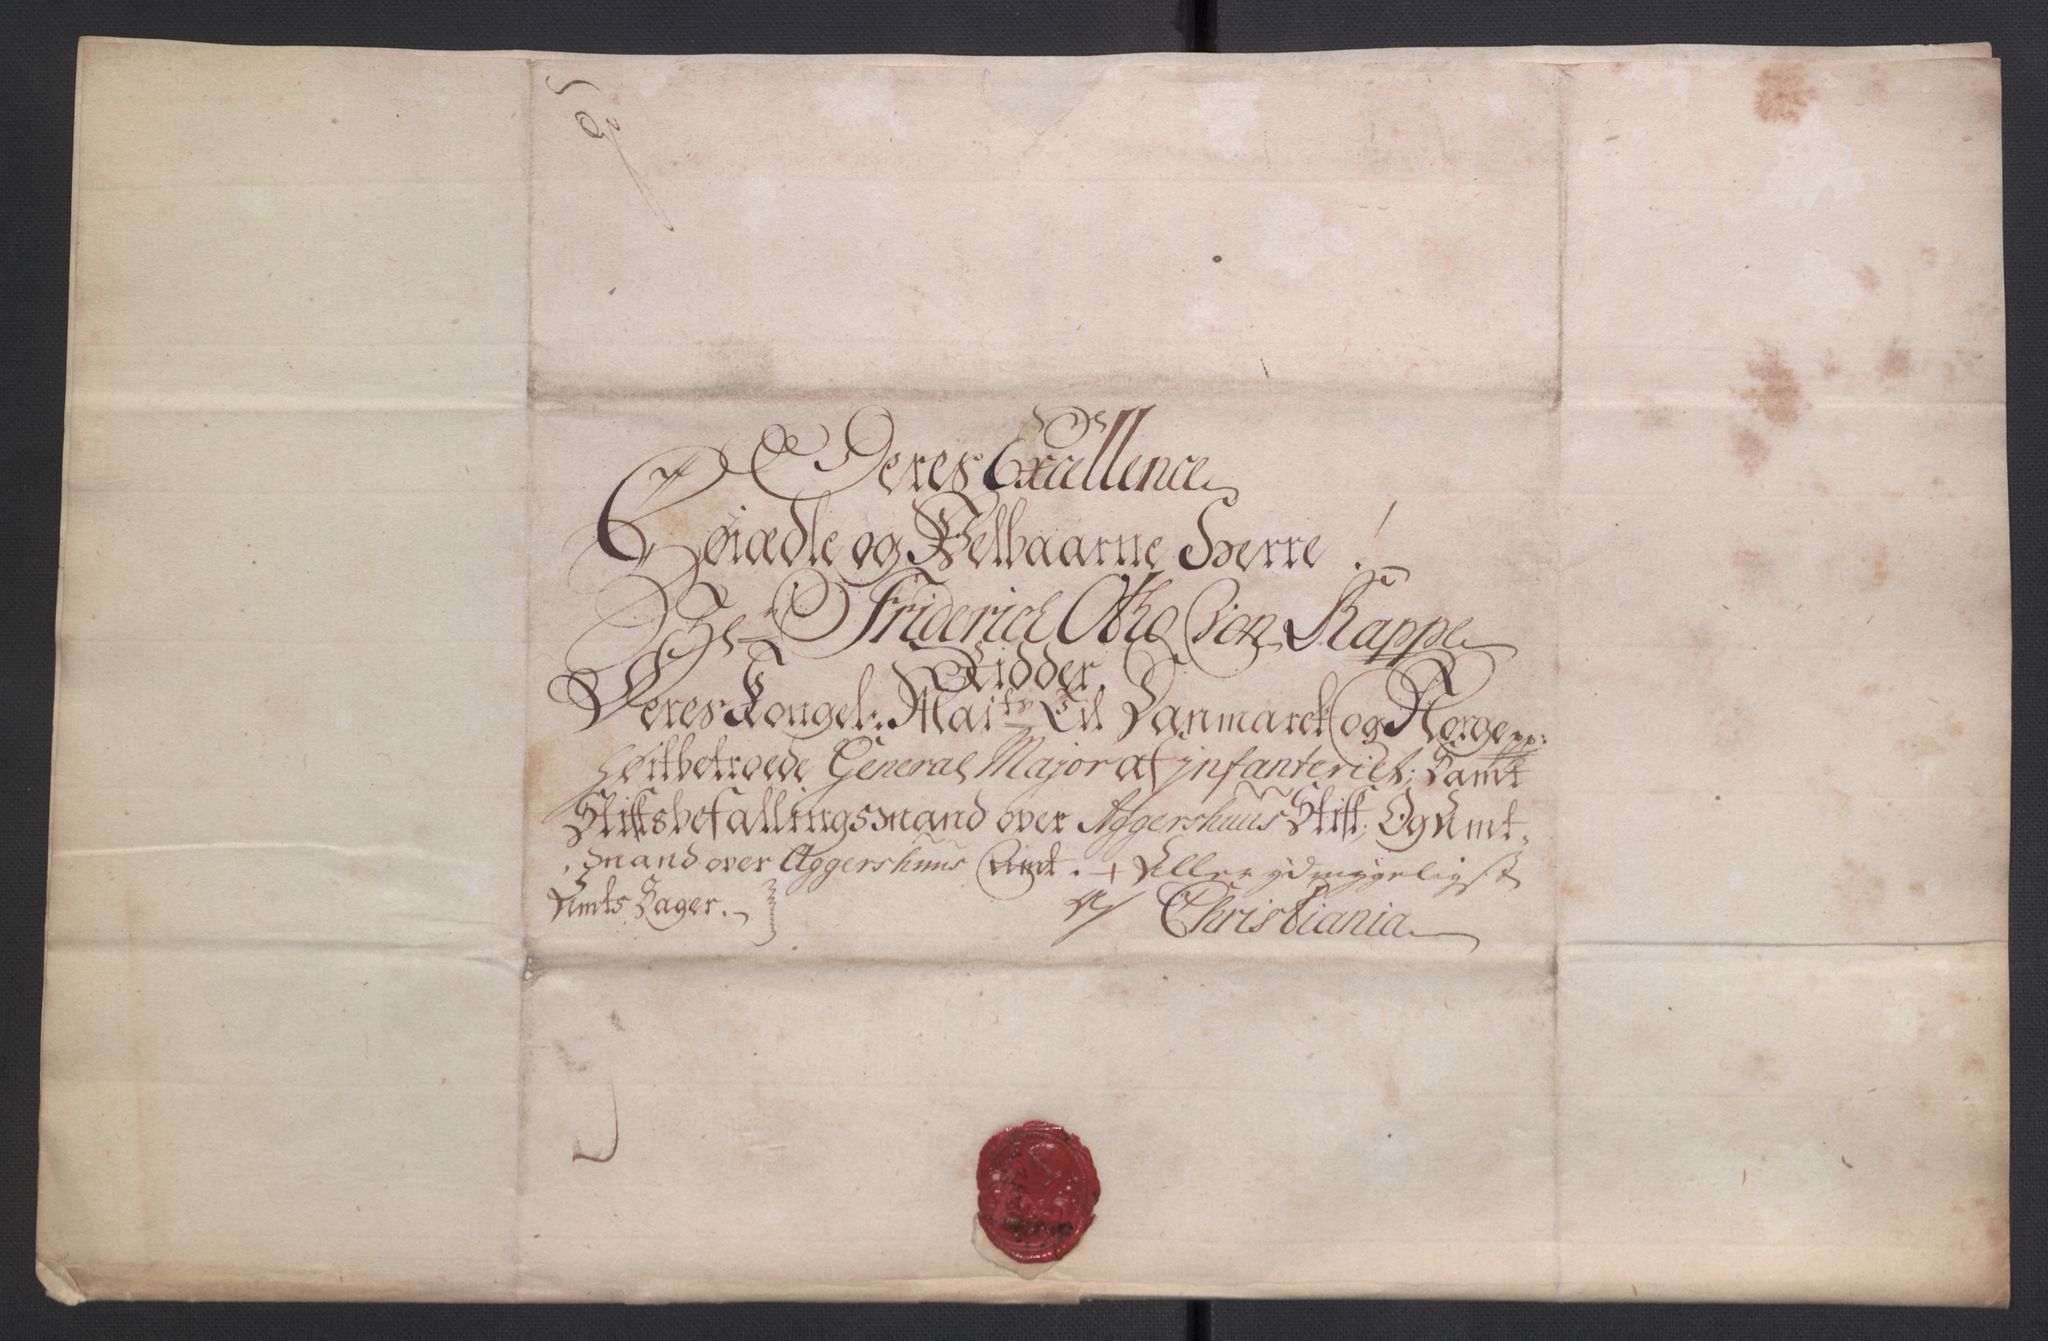 Deres Excellence
Høiædle og Velbaarne Herre!
Hr Friderich Otto von Rappe
Ridder.
Deres Kongel: Maits Til Danmarck og Norge pp:
Høitbetroede General Major af jnfanteriet, Samt
Stiftsbefallingsmand over Aggershuus Stift, Og Amt-
mand over Aggershuus Amt. Allerydmygeligst
Amts Sager. Christiania